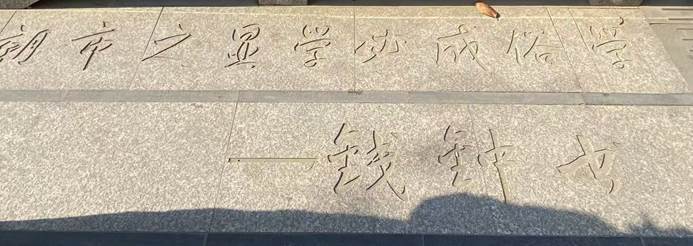 朝市之显学必成俗学
—钱钟书